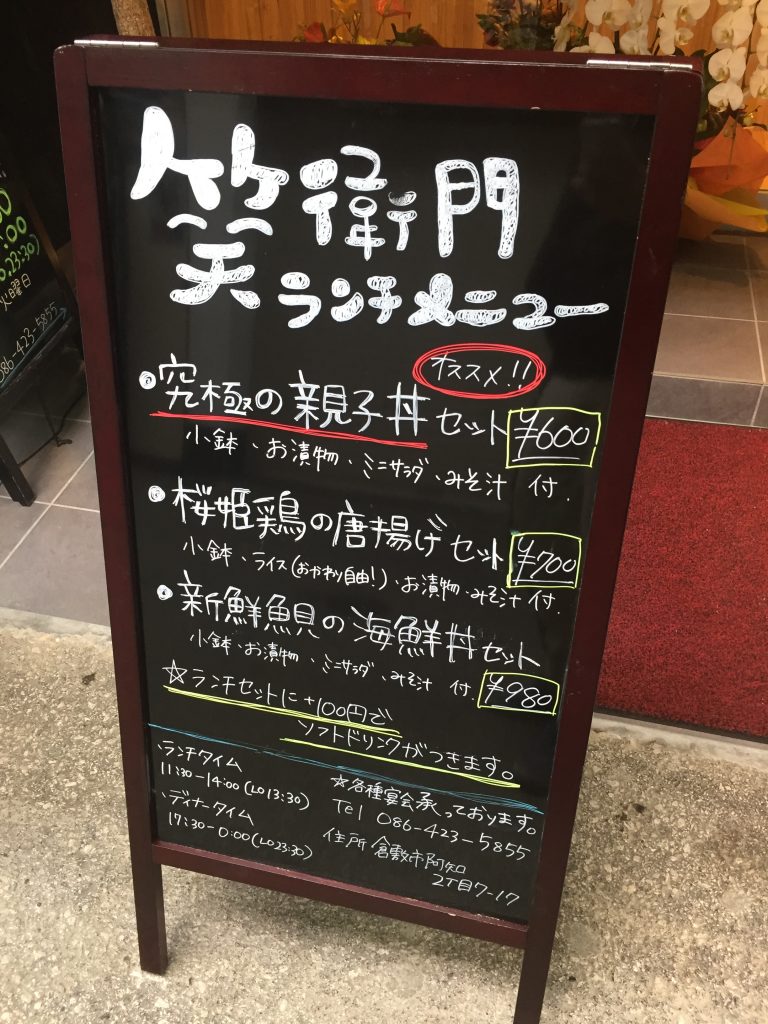 笑衛門
ランチメニュー
オススメ!!
究極の親子丼セット ¥600
小鉢、お漬物、ミニサラダ、みそ汁 付.
桜姫鶏の唐揚げセット ¥700
小鉢、ライス(おかわり自由!)、お漬物、みそ汁 付.
新鮮魚貝の海鮮丼セット
小鉢、お漬物、ミニサラダ、みそ汁 付. ¥980
☆ランチセットに+100円で
ソフトドリンクがつきます。
・ランチタイム
11:30-14:00(LO13:30)
・ディナータイム
17:30-0:00(LO23:30)
☆各種宴会承っております。
Tel 086-423-5855
住所 倉敷市阿知
2丁目7-17
:00
火曜日
086-423-5855